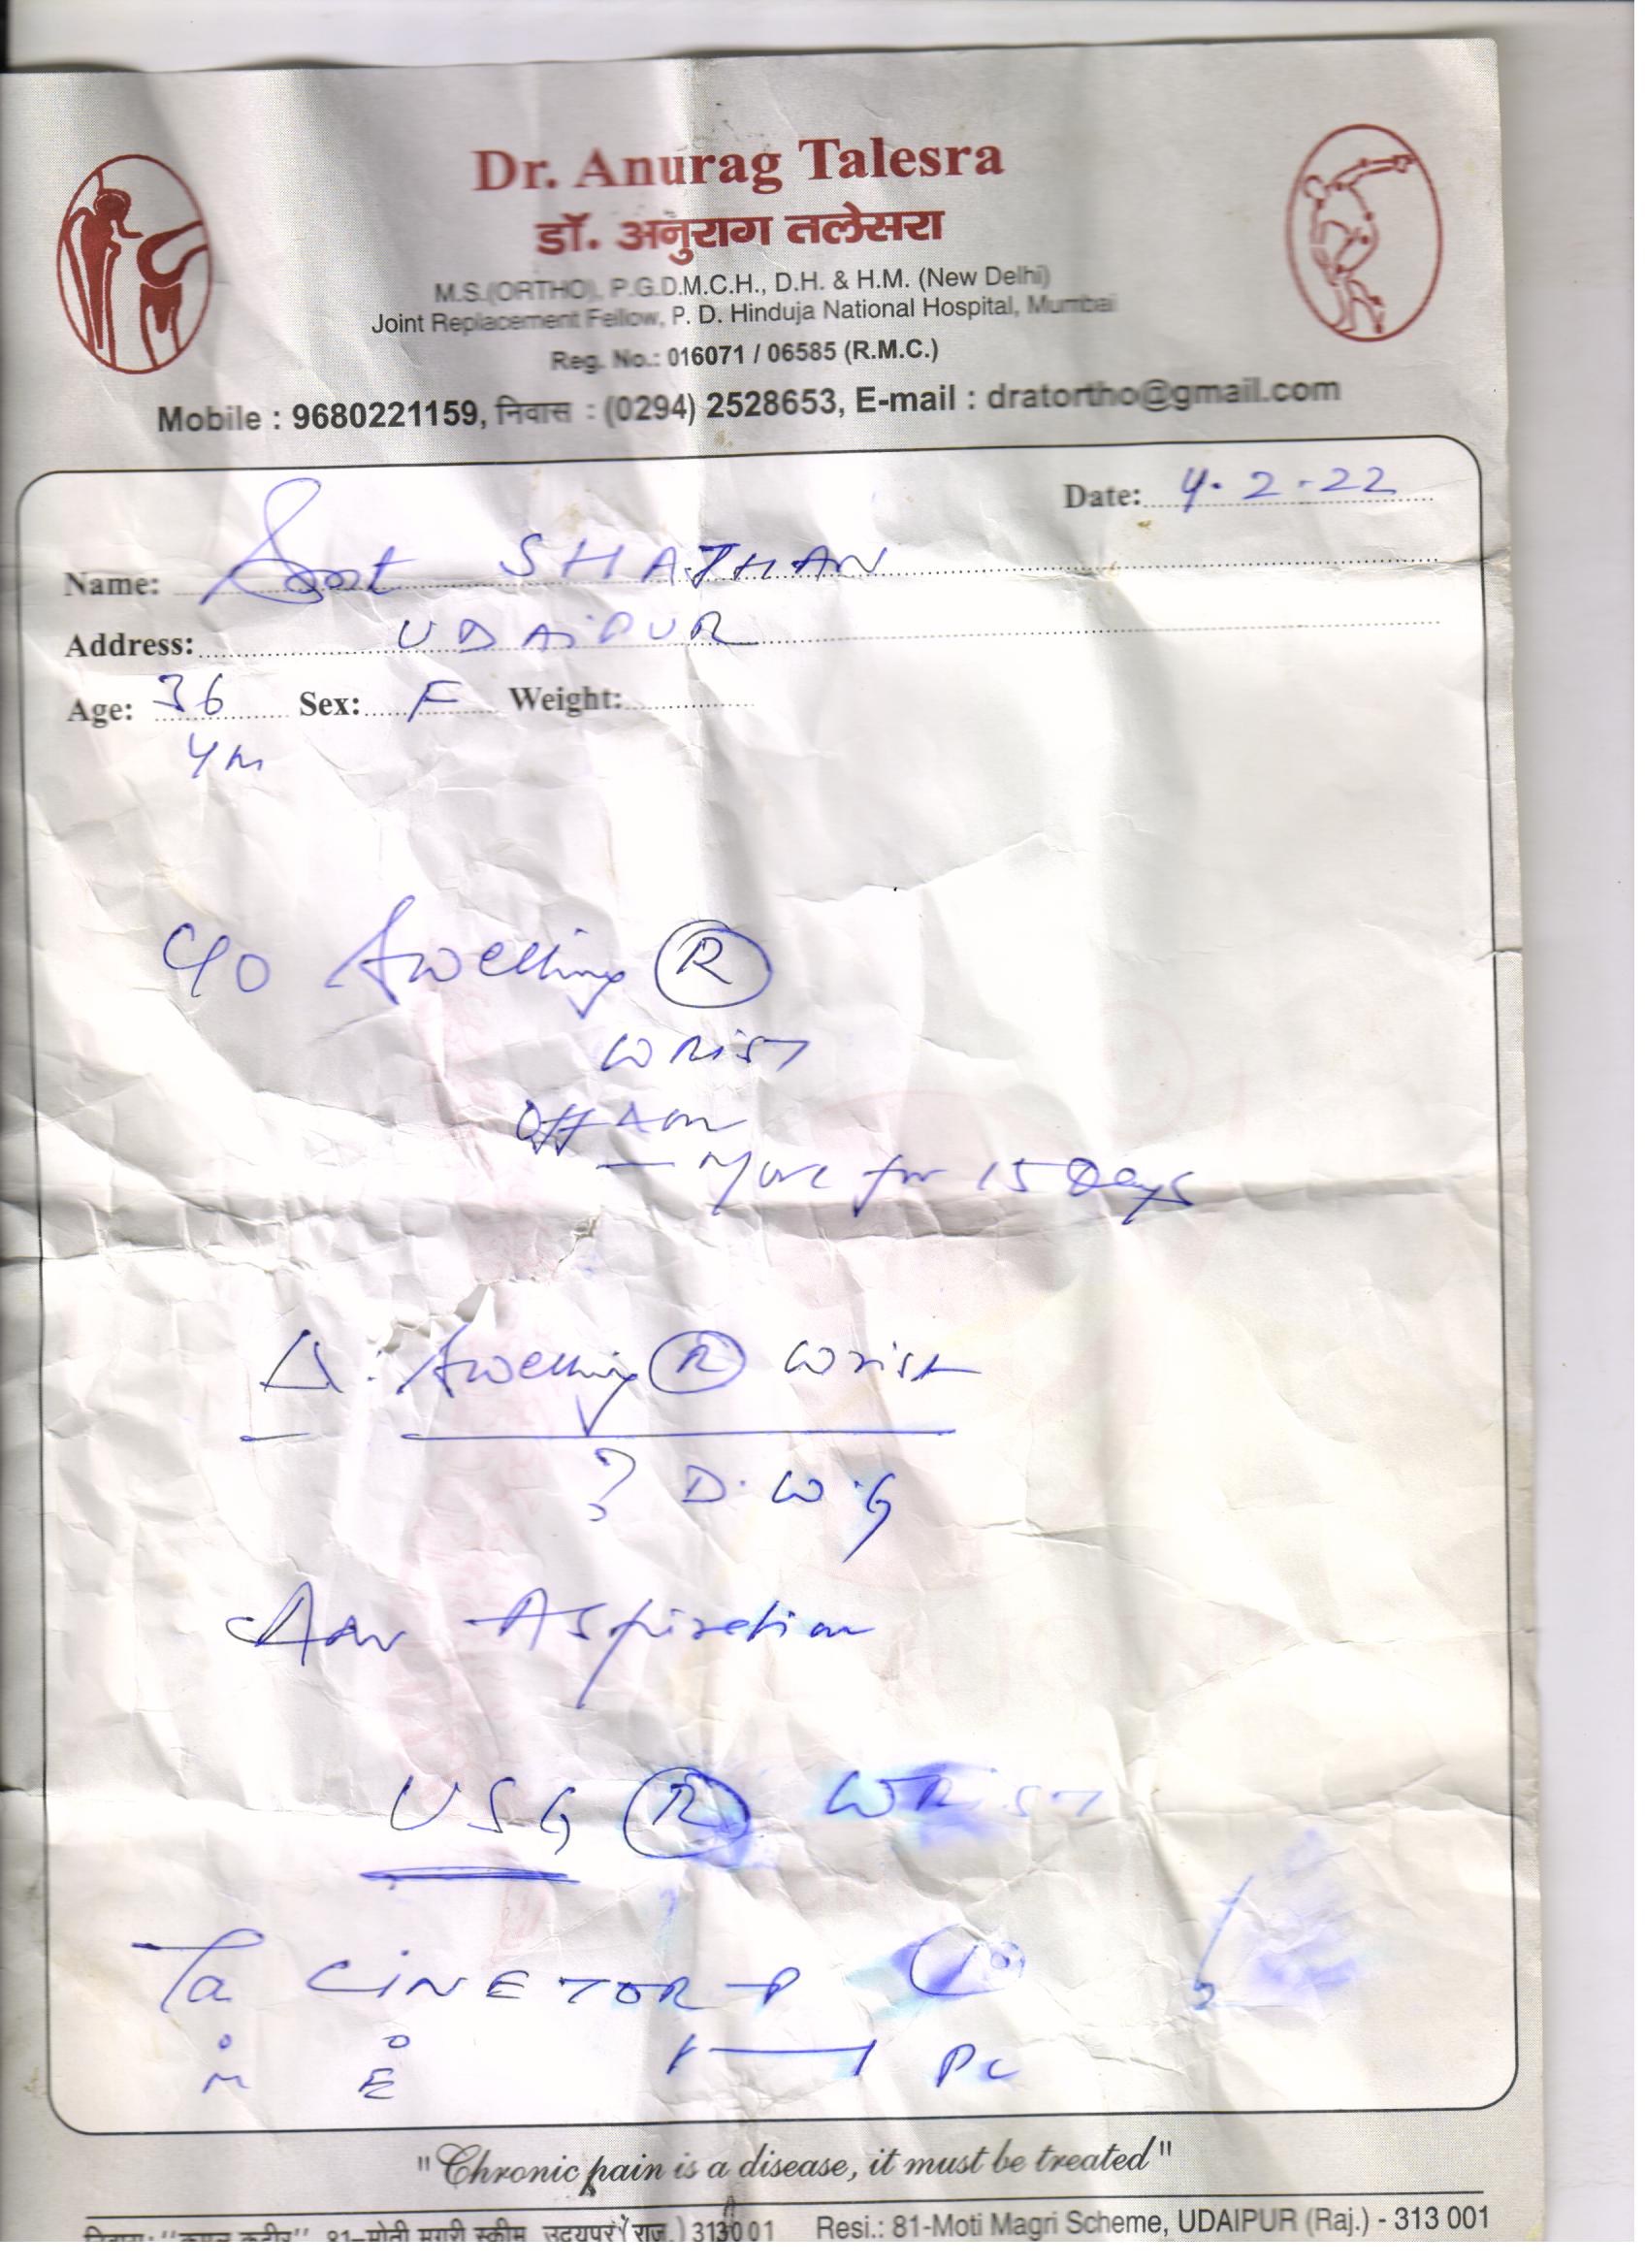 Dr. Anurag Talesra
डॉ. अनुराग तलेसरा
M.S.(ORTHO), P.G.D.M.C.H., D.H. & H.M. (New Delhi)
Joint Replacement Fellow, P. D. Hinduja National Hospital, Mumbai
Reg. No.: 016071 / 06585 (R.M.C.)
Mobile : 9680221159, निवास : (0294) 2528653, E-mail : dratortho@gmail.com
Date: 4.2.22
Name: Smt
Address: UDAIPUR
Age: 36 Sex: F Weight:
4m
C/O Swelling (R)
WRIST
Off & on
— More for 15 Days
Δ: Swelling (R) Wrist
? D.W.G
Adv Aspiration
USG (R) WRIST
Ta CINETOR-P
M E PC
"Chronic pain is a disease, it must be treated"
81-मोती मगरी स्कीम, उदयपुर (राज.) 313001 Resi.: 81-Moti Magri Scheme, UDAIPUR (Raj.) - 313 001